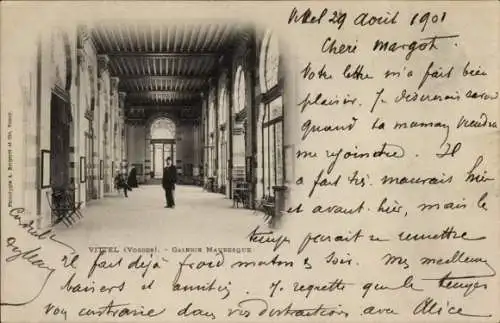 Vittel 29 Août 1901
Chèri Margot.
Votre lettre m'a fait bien
plaisir. Je désirerais savoir
quand ta maman viendra
me rejoindre. Il
a fait très mauvais hier
et avant-hier, mais le
temps parait se remettre
Il fait déjà froid matin & soir. Mes meilleurs
baisers et amitiés. Je regrette que le temps
vous contrarie dans vos distractions avec Alice
VITTEL (Vosges). - GALERIE MAURESQUE
Phototypie A. Bergeret et Cie, Nancy.